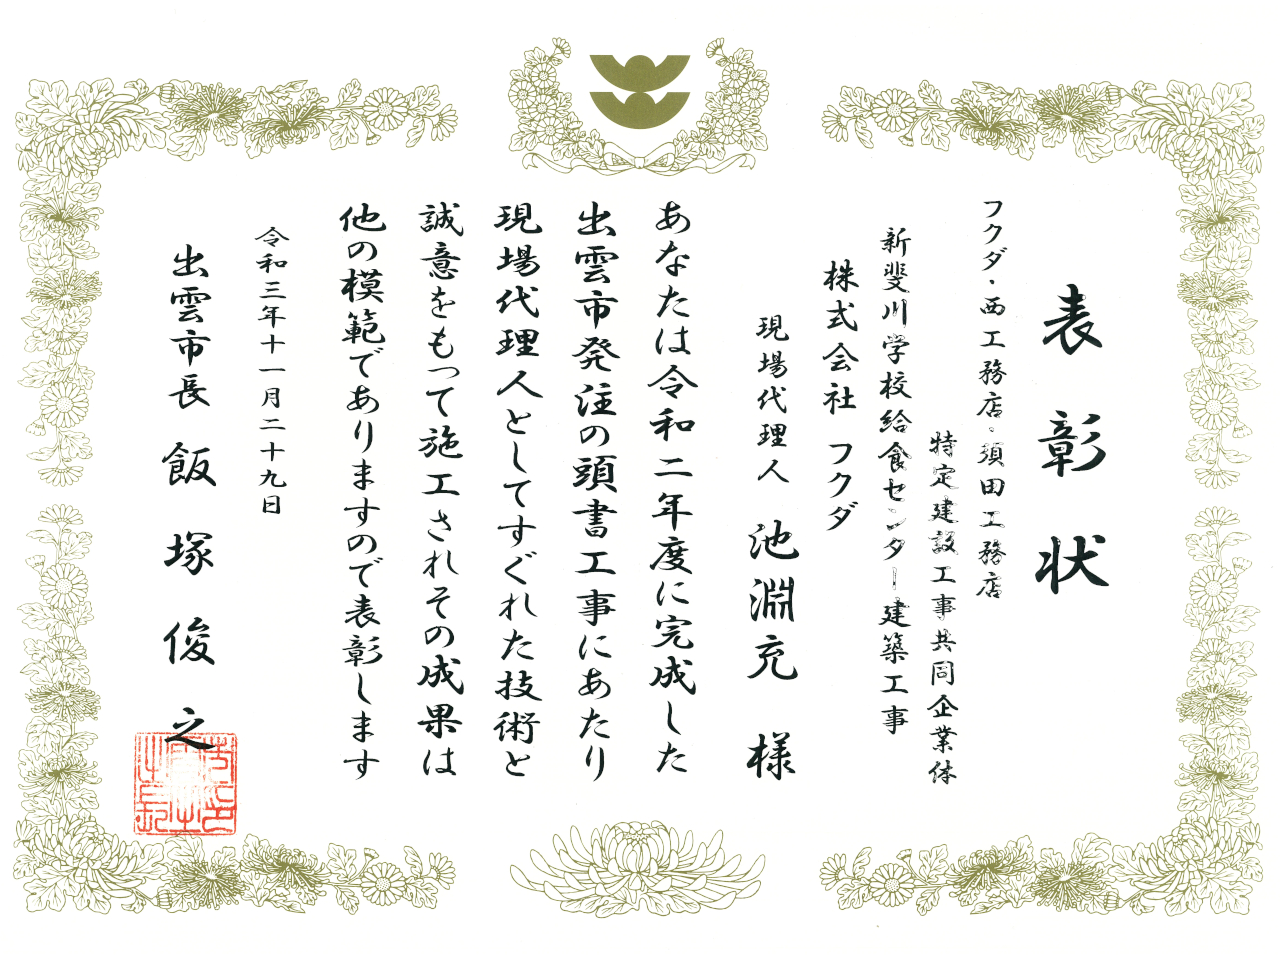 表彰状
フクダ・西工務店・須田工務店
特定建設工事共同企業体
新斐川学校給食センター建築工事
株式会社 フクダ
現場代理人 池淵充 様
あなたは令和二年度に完成した
出雲市発注の頭書工事にあたり
現場代理人としてすぐれた技術と
誠意をもって施工されその成果は
他の模範でありますので表彰します
令和三年十一月二十九日
出雲市長 飯塚俊之